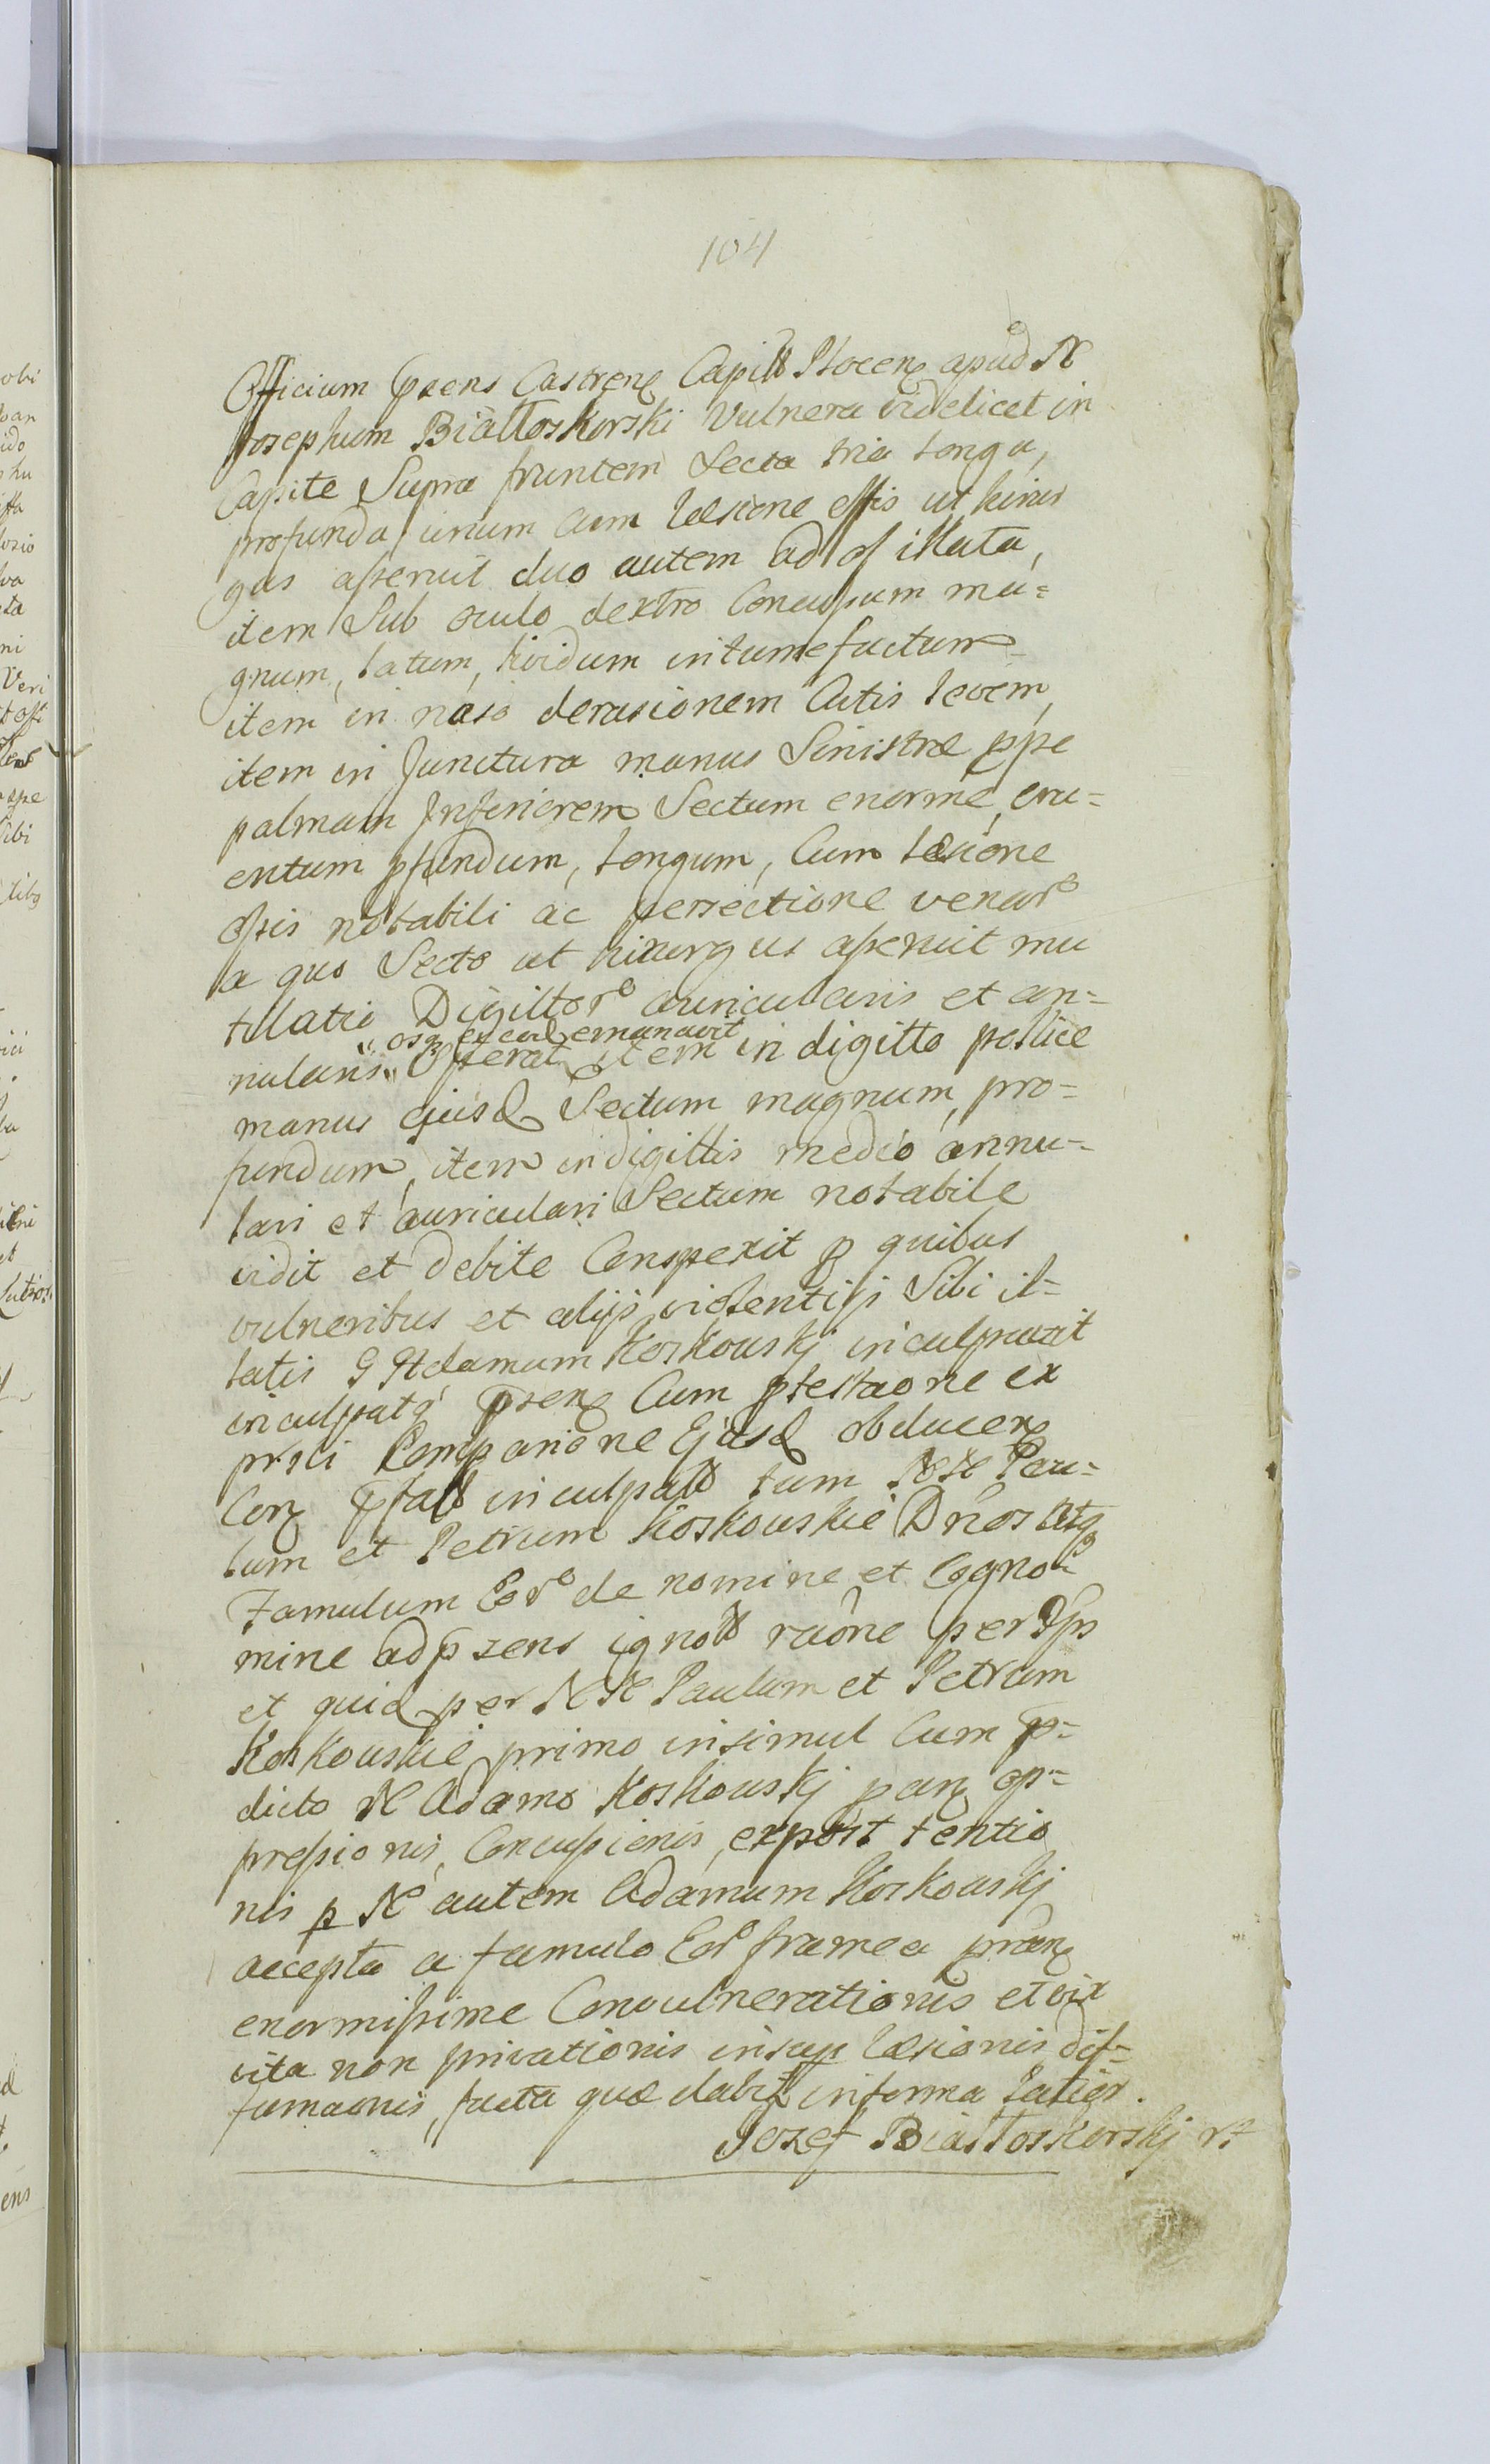 104
Officium pnens Castren Capitt Plocen apud N
Josephum Białłoskorski Vulnera videlicet in
Capite Supra frontem Secta tria longa,
profunda, unum cum læsione ossis ut hirur
gus asseruit duo autem ad os illata,
item Sub oculo dextro Concussum ma=
gnum, latum, lividum intumefactum
item in naso derasionem Cutis levem,
item in Junctura manus Sinistræ ppe
palmam Inferiorem Sectum enorme, cru=
entum pfundum, longum, Cum læsione
ossis notabili ac persectione venar
a quo Secto ut hirurgus asseruit mu
tilatio Digittor auricularis et an=
nularis osq emanavit
item in digitto pollice
manus ejusd Sectum magnum, pro=
fundum, item in digittis medio annu=
lari et auriculari Sectum notabile
vidit et debite Conspexit p quibus
vulneribus et alijs violentijs Sibi il=
latis G Adamum Koskouskj inculpavit
inculpatq psen Cum ptestaone ex
prsti Comparione Ejusd obducen
Con ptatt inculpatt tum NN Pau=
lum et Petrum Koskouskie Dnos atq
Famulum Eor de nomine et Cogno=
mine ad psens ignott raône per Ips
et quid per NN Paulum et Petrum
Koskouskie primo insimul Cum p=
dicto N Adamo Koskouskj pan op=
pressionis, Concussionis, expost tentio
nis p N autem Adamum Koskouskj
accepta a famulo Eor framea pran
enormissime Convulnerationis et vix
vita non privationis insup læsionis dif=
famaonis, facta quæ dabit in forma latior.
Jozef Białłoskorskj